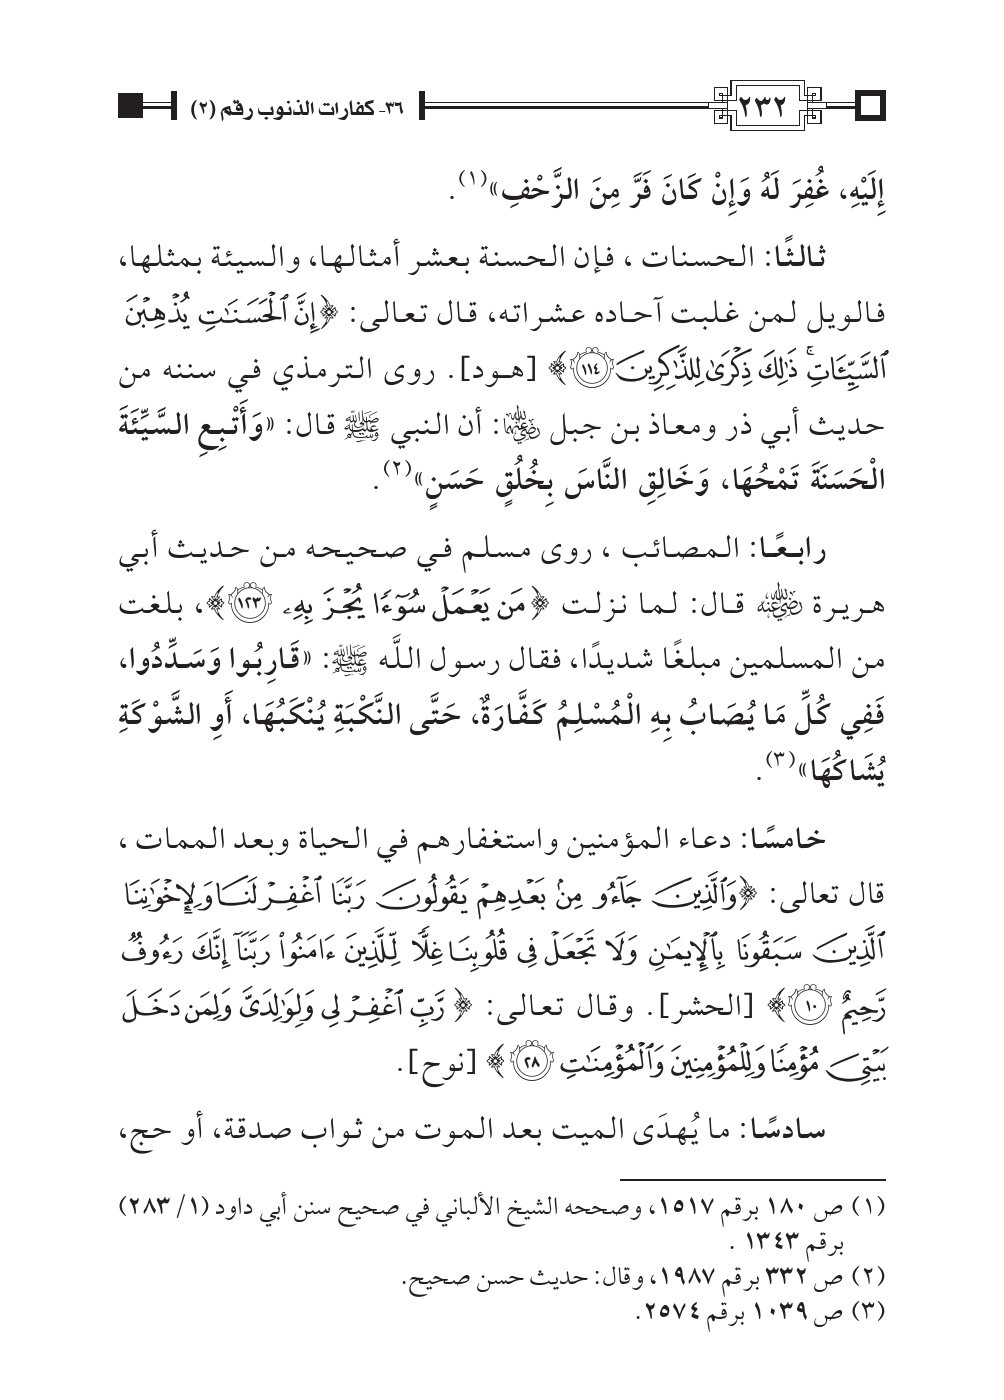 ٢٣٢
٣٦- كفارات الذنوب رقم (٢)
إِلَيْهِ، غُفِرَ لَهُ وَإِنْ كَانَ فَرَّ مِنَ الزَّحْفِ»(١).
ثالثًا: الحسنات ، فإن الحسنة بعشر أمثالها، والسيئة بمثلها،
فالويل لمن غلبت آحاده عشراته، قال تعالى: ﴿إِنَّ ٱلْحَسَنَٰتِ يُذْهِبْنَ
ٱلسَّيِّـَٔاتِۚ ذَٰلِكَ ذِكْرَىٰ لِلذَّٰكِرِينَ ١١٤﴾ [هود]. روى الترمذي في سننه من
حديث أبي ذر ومعاذ بن جبل رضي الله عنهما: أن النبي ﷺ قال: «وَأَتْبِعِ السَّيِّئَةَ
الْحَسَنَةَ تَمْحُهَا، وَخَالِقِ النَّاسَ بِخُلُقٍ حَسَنٍ»(٢).
رابعًا: المصائب ، روى مسلم في صحيحه من حديث أبي
هريرة رضي الله عنه قال: لما نزلت ﴿مَن يَعْمَلْ سُوٓءًا يُجْزَ بِهِۦ ١٢٣﴾، بلغت
من المسلمين مبلغًا شديدًا، فقال رسول اللَّه ﷺ: «قَارِبُوا وَسَدِّدُوا،
فَفِي كُلِّ مَا يُصَابُ بِهِ الْمُسْلِمُ كَفَّارَةٌ، حَتَّى النَّكْبَةِ يُنْكَبُهَا، أَوِ الشَّوْكَةِ
يُشَاكُهَا»(٣).
خامسًا: دعاء المؤمنين واستغفارهم في الحياة وبعد الممات ،
قال تعالى: ﴿وَٱلَّذِينَ جَآءُو مِنۢ بَعْدِهِمْ يَقُولُونَ رَبَّنَا ٱغْفِرْ لَنَا وَلِإِخْوَٰنِنَا
ٱلَّذِينَ سَبَقُونَا بِٱلْإِيمَٰنِ وَلَا تَجْعَلْ فِى قُلُوبِنَا غِلًّا لِّلَّذِينَ ءَامَنُوا۟ رَبَّنَآ إِنَّكَ رَءُوفٌ
رَّحِيمٌ ١٠﴾ [الحشر]. وقال تعالى: ﴿رَّبِّ ٱغْفِرْ لِى وَلِوَٰلِدَىَّ وَلِمَن دَخَلَ
بَيْتِىَ مُؤْمِنًا وَلِلْمُؤْمِنِينَ وَٱلْمُؤْمِنَٰتِ ٢٨﴾ [نوح].
سادسًا: ما يُهدَى الميت بعد الموت من ثواب صدقة، أو حج،
(١) ص ١٨٠ برقم ١٥١٧، وصححه الشيخ الألباني في صحيح سنن أبي داود (١/ ٢٨٣)
برقم ١٣٤٣ .
(٢) ص ٣٣٢ برقم ١٩٨٧، وقال: حديث حسن صحيح.
(٣) ص ١٠٣٩ برقم ٢٥٧٤.